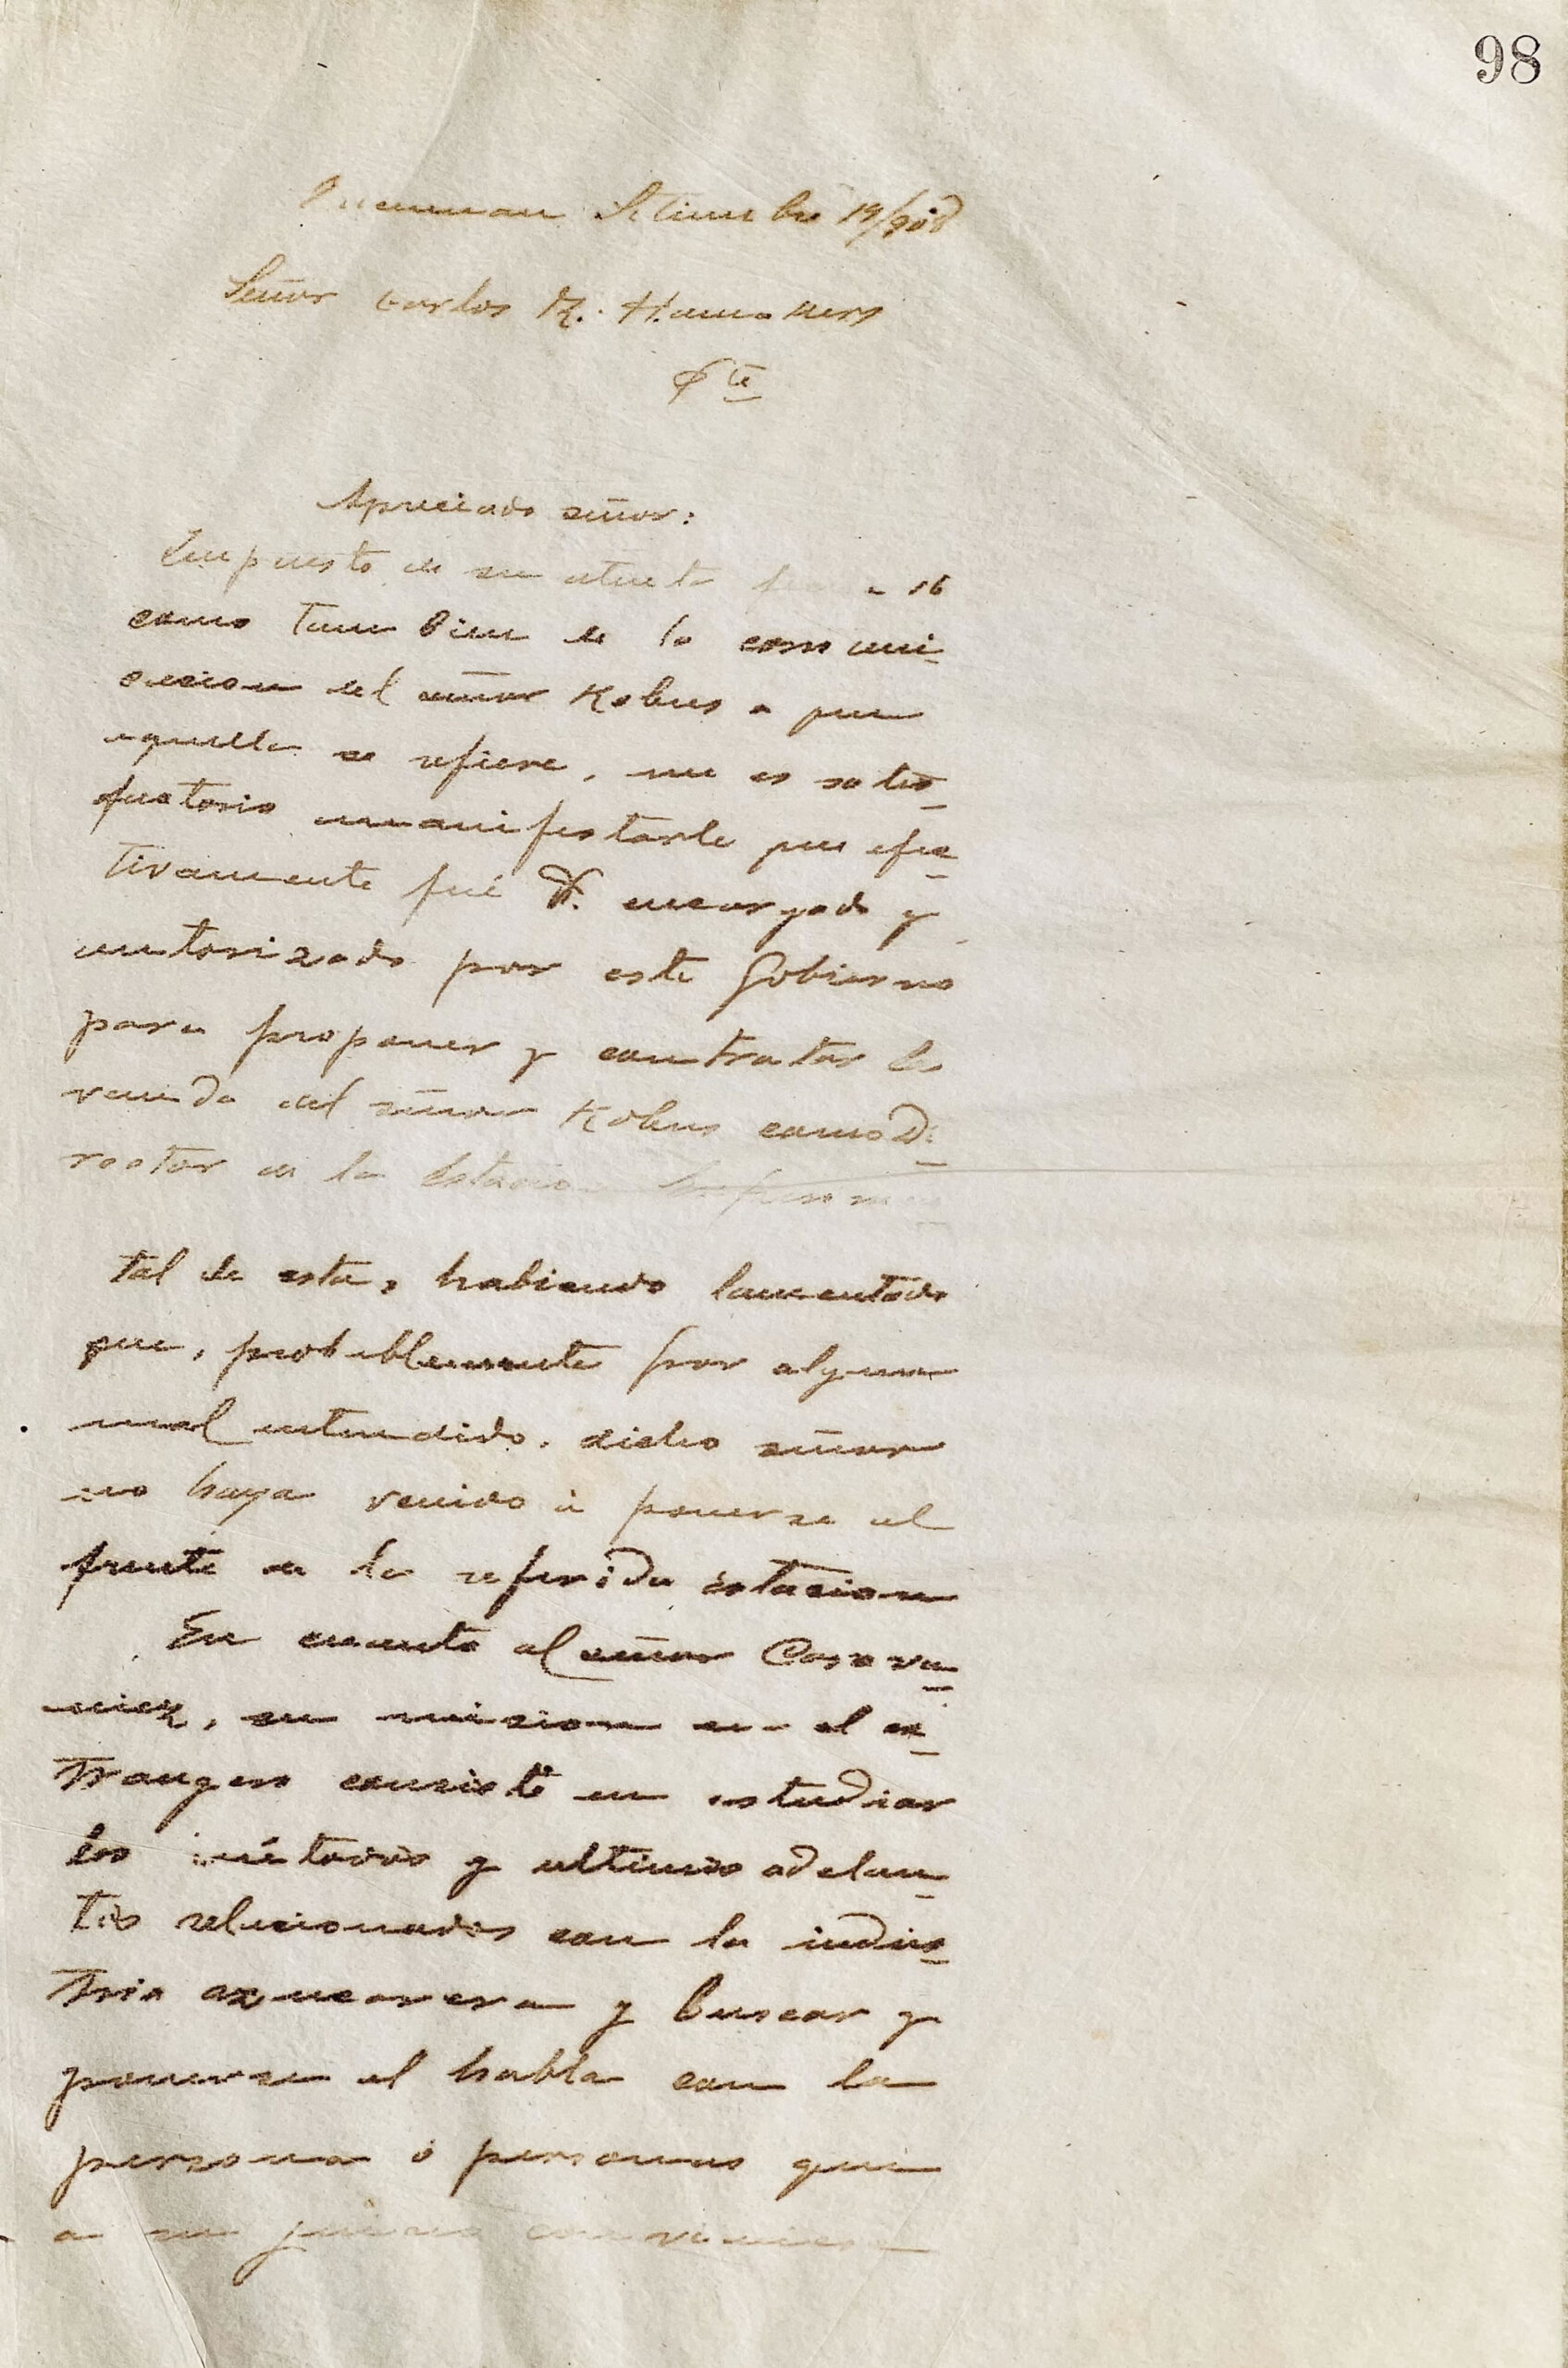 98
Tucuman Setiembre 19/908
Señor Carlos R. Hamakers
Pte
Apreciado señor:
Impuesto de su atenta 16
como tambien de la comuni-
cacion del señor Kobus a que
aquella se refiere, me es satis-
factorio manifestarle que efec-
tivamente fué V. encargado y
autorizado por este Gobierno
para proponer y contratar la
venida del señor Kobus como Di-
rector de la Estacion Experimen-
tal de esta, habiendo lamentado
que, probablemente por algun
mal entendido, dicho señor
no haya venido á ponerse al
frente de la referida estacion
En cuanto al señor Casava-
nien, su mision en el ex-
trangero consiste en estudiar
los métodos y ultimos adelan-
tos relacionados con la indus-
tria azucarera y buscar y
ponerse al habla con la
persona ó personas que
a su juicio conviniera